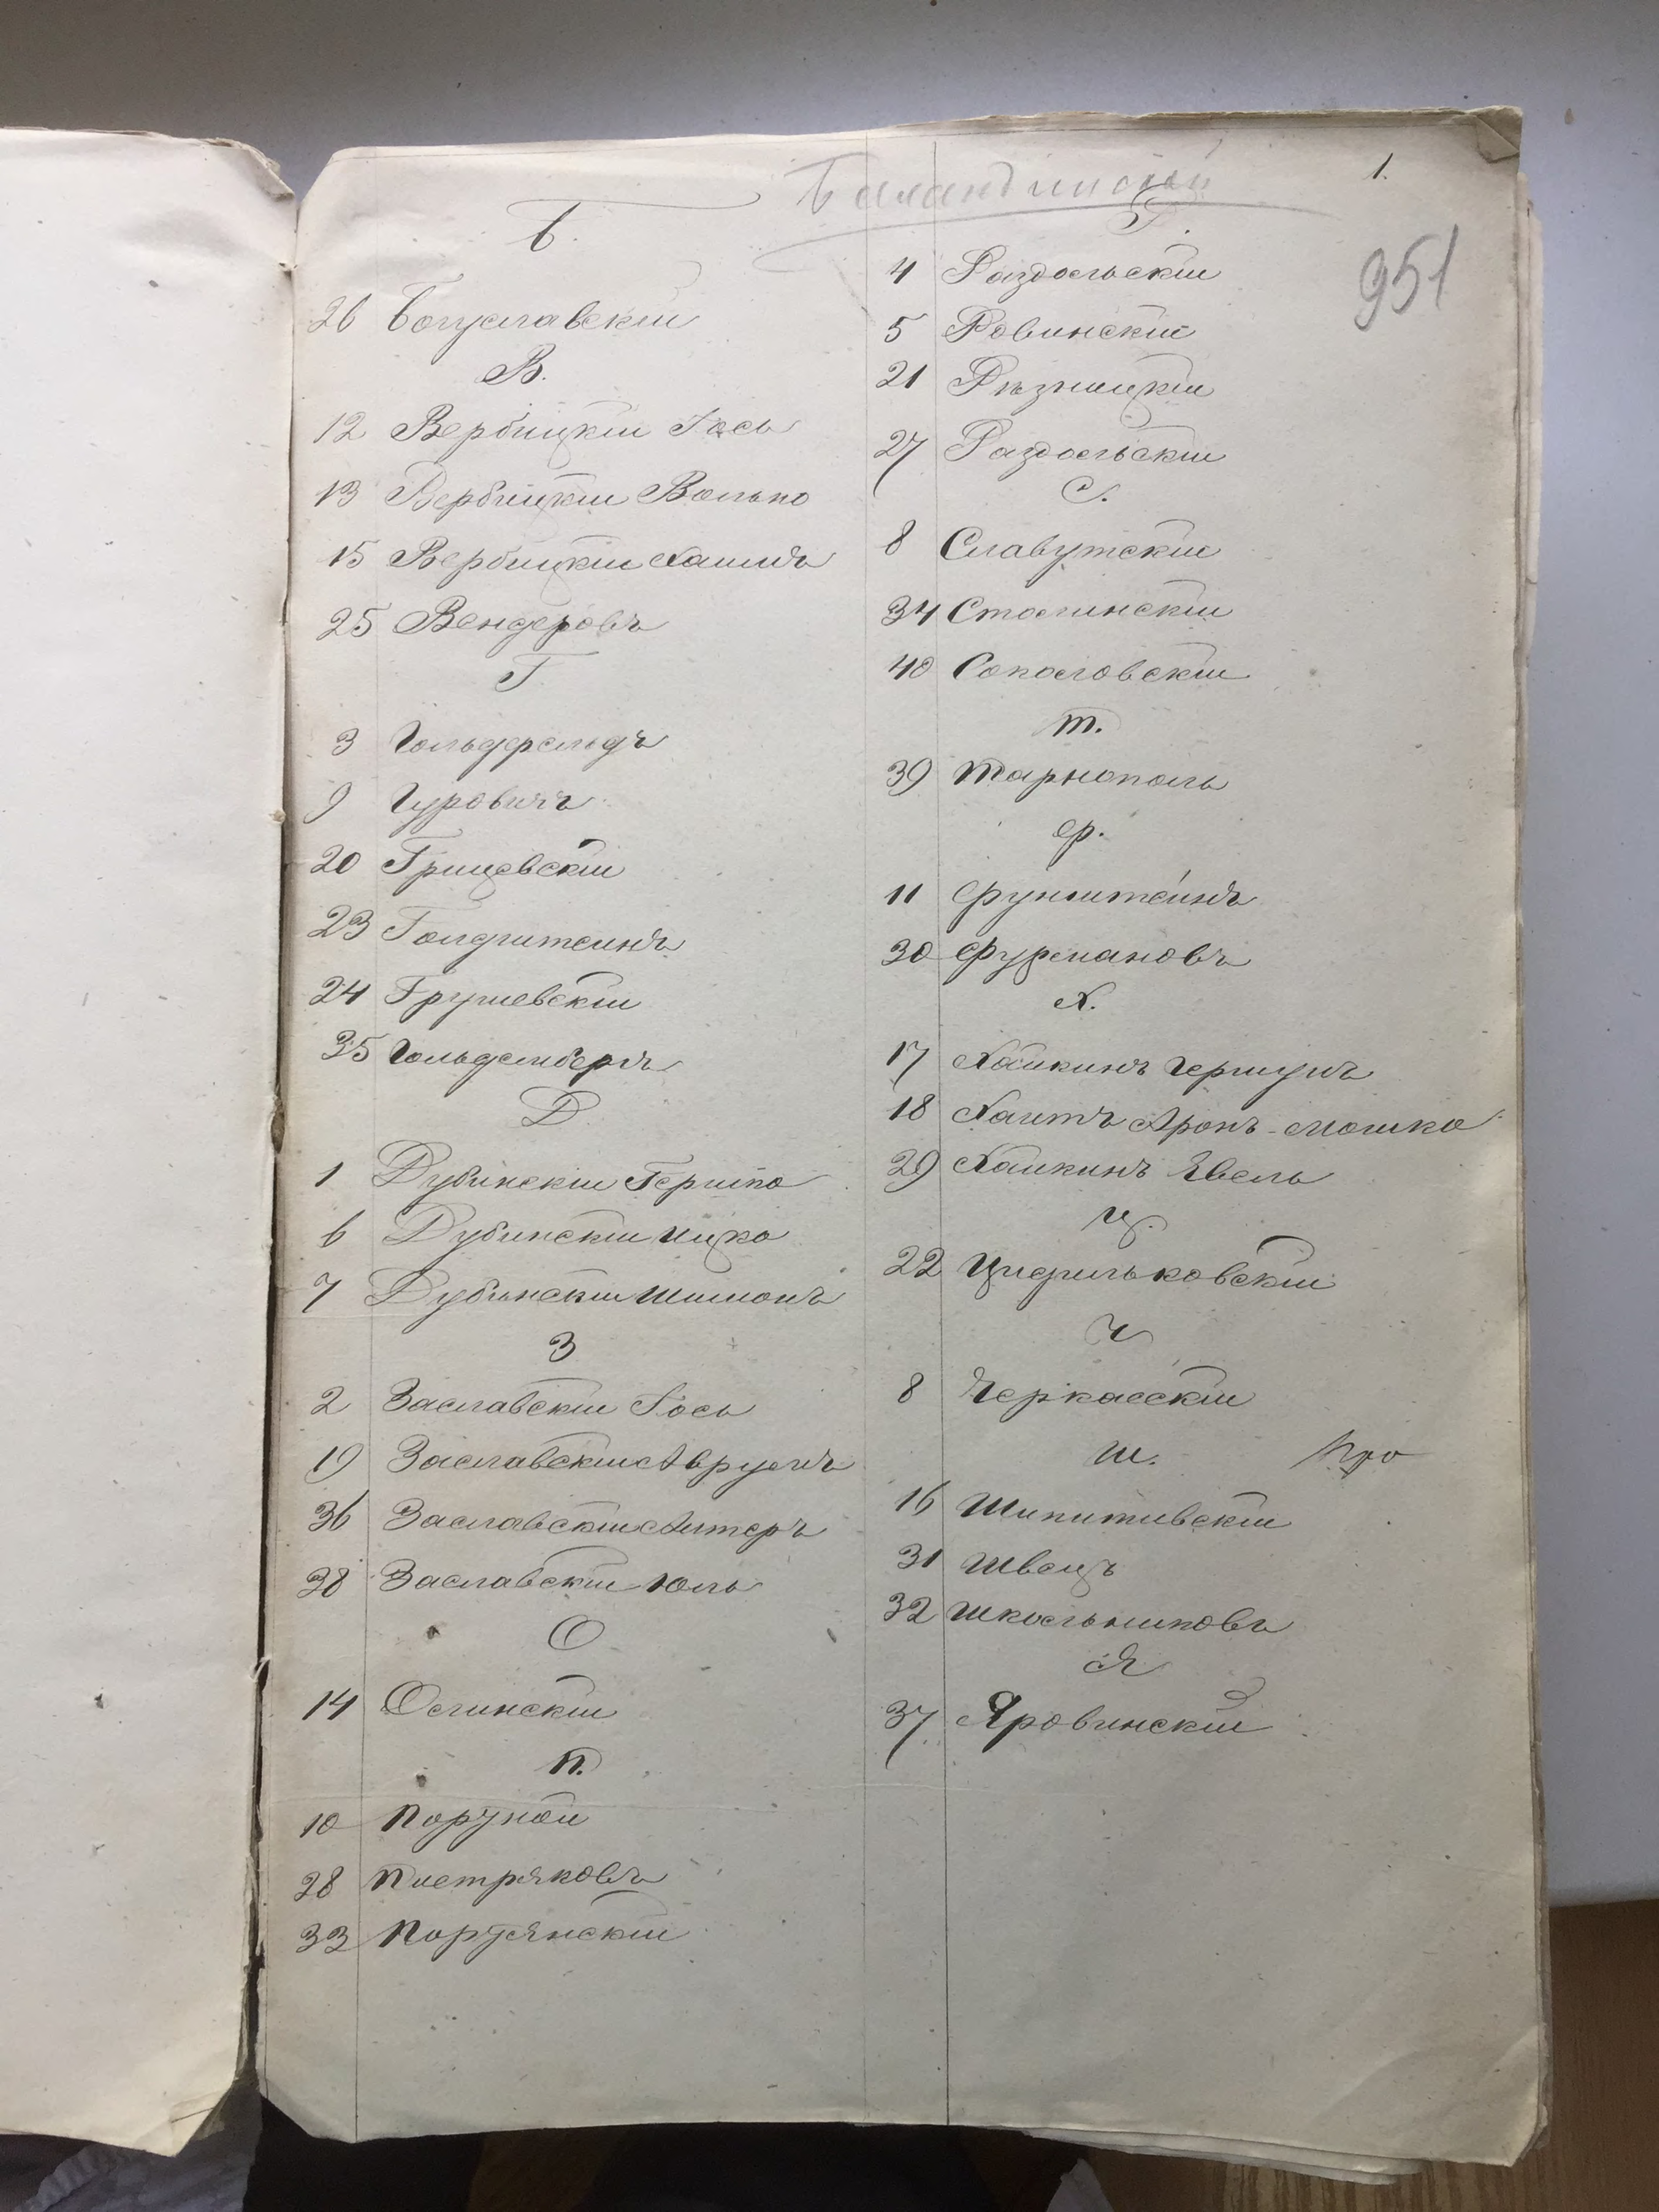 Баландинскій
1.
951
Б.
26 Богуславскій
В.
12 Вербицкій Іось
13 Вербицкій Волько
15 Вербицкій Хаимъ
25 Вендеровъ
Г
3 Гольдфельдъ
9 Гуровичъ
20 Грицевскій
23 Голдштейнъ
24 Грушевскій
35 Гольденбергъ
Д
1 Дубинскій Гершко
6 Дубинскій Ицко
7 Дубинскій Шимонъ
З
2 Заславскій Іось
19 Заславскій Аврумъ
36 Заславскій Алтеръ
38 Заславскій Юль
О
14 Ослинскій
П.
10 Порукой
28 Пистряковъ
33 Портянскій
Р.
4 Раздольскій
5 Ровинскій
21 Рѣзницкій
27 Раздольскій
С.
8 Славутскій
34 Столинскій
40 Соколовскій
Т.
39 Тарнополь
Ф.
11 Фунштейнъ
30 Фурмановъ
Х.
17 Хайкинъ Гершунъ
18 Хаитъ Аронъ-Мошко
29 Хайкинъ Эвель
Ц.
22 Цидильковскій
Ч
8 Черкасскій
Ш.
16 Шипитивскій
31 Швецъ
32 Школьниковъ
Я
37 Яровинскій